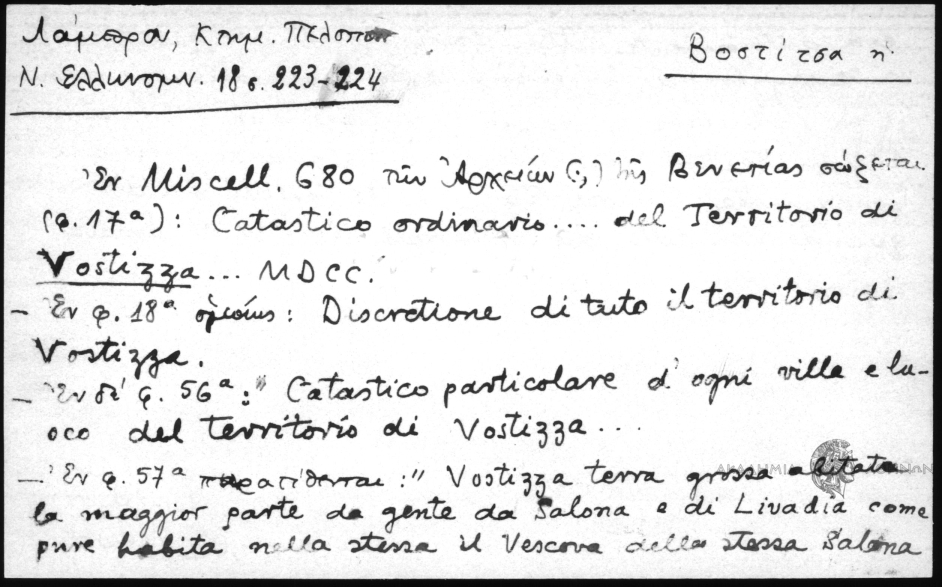 Λάμπρου, Κτημ. Πελοπον
Βοστίτσα ἡ.
Ν. Ἑλληνομν. 18 σ. 223-224
Ἐν Miscell. 680 τῶν Ἀρχείων (;) τῆς Βενετίας σώζεται
(φ. 17α): Catastico ordinario.... del Territorio di
Vostizza... MDCC.
- Ἐν φ. 18α ὁμοίως: Discretione di tuto il territorio di
Vostizza.
- Ἐν δέ φ. 56α: " Catastico particolare d' ogni ville e lu-
oco del territorio di Vostizza...
- Ἐν φ. 57α παρατίθενται: " Vostizza terra grossa abitata
la maggior parte da gente da Salona e di Livadia come
pure habita nella stessa il Vescova della stessa Salona